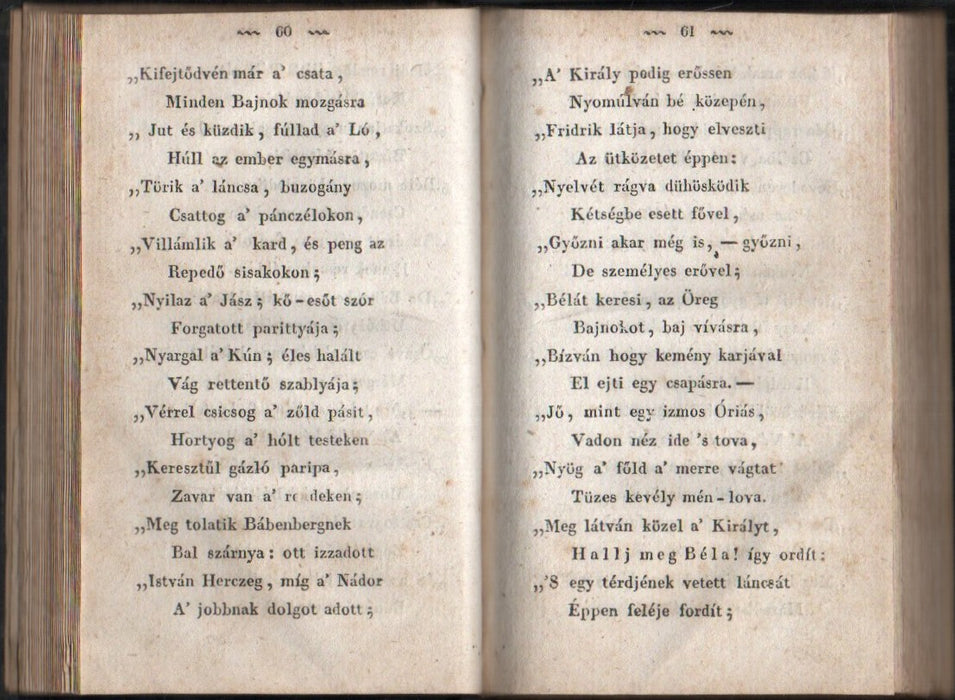 60
„Kifejtődvén már a' csata,
Minden Bajnok mozgásra
„ Jut és küzdik, fúllad a' Ló,
Húll az ember egymásra,
„Törik a' láncsa, buzogány
Csattog a' pánczélokon,
„Villámlik a' kard, és peng az
Repedő sisakokon;
„Nyilaz a' Jász; kő-esőt szór
Forgatott parittyája;
„Nyargal a' Kún; éles halált
Vág rettentő szablyája;
„Vérrel csicsog a' zőld pásit,
Hortyog a' hólt testeken
„Keresztűl gázló paripa,
Zavar van a' rendeken;
„Meg tolatik Bábenbergnek
Bal szárnya: ott izzadott
„István Herczeg, míg a' Nádor
A' jobbnak dolgot adott;
61
„A' Király pedig erőssen
Nyomúlván bé közepén,
„Fridrik látja, hogy elveszti
Az ütközetet éppen:
„Nyelvét rágva dühösködik
Kétségbe esett fővel,
„Győzni akar még is, — győzni,
De személyes erővel;
„Bélát keresi, az Öreg
Bajnokot, baj vívásra,
„Bízván hogy kemény karjával
El ejti egy csapásra. —
„Jő, mint egy izmos Óriás,
Vadon néz ide 's tova,
„Nyög a' főld a' merre vágtat
Tüzes kevély mén-lova.
„Meg látván közel a' Királyt,
Hallj meg Béla! így ordít:
„'S egy térdjének vetett láncsát
Éppen feléje fordít;